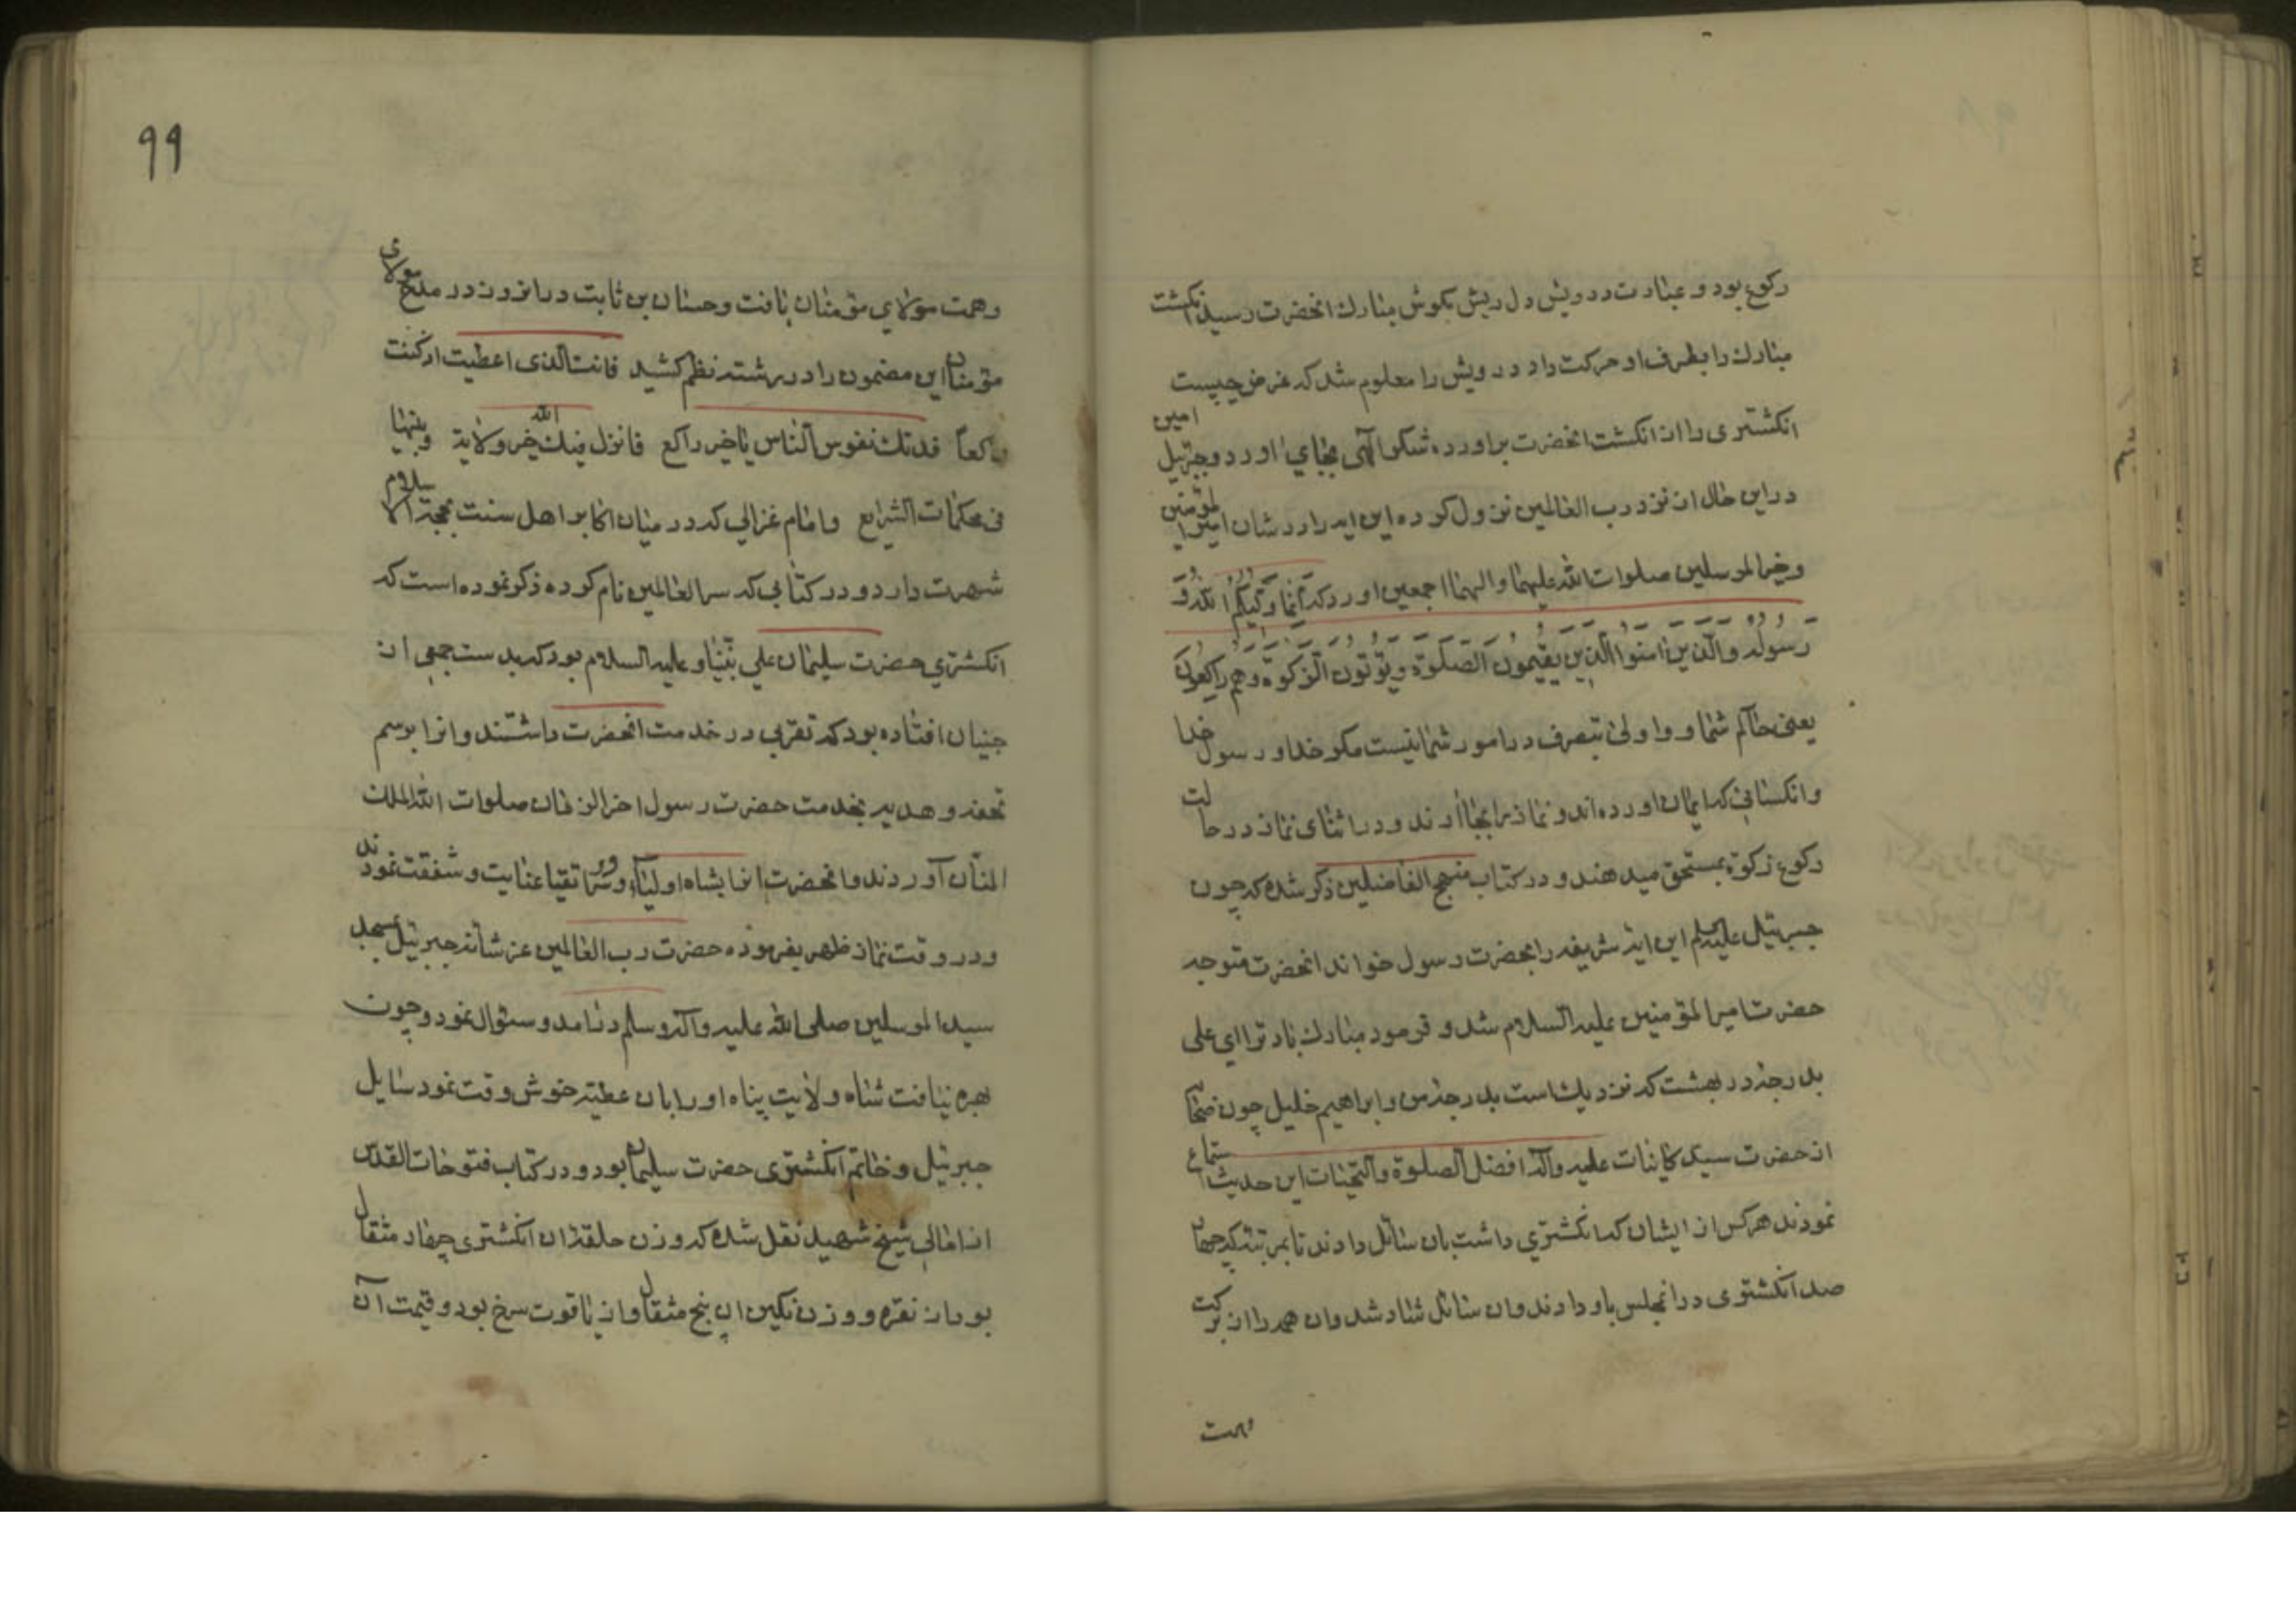 رکوع بود و عبادت درویش دل ریش بکوش مبارک انحضرت رسید انکشت
مبارک را بطرف او حرکت داد درویش را معلوم شد که غرض چیست
انکشتری را از انکشت انحضرت براورده شکر الهی بجای اورد و جبرئیل امین
در این حال از نزد رب العالمین نزول کرده این ایه را در شان امیر المؤمنین
و خیر المرسلین صلوات الله علیهما و الهما اجمعین اورد که اِنَّما وَلِیُّکُمُ اللهُ وَ
رَسُولُهُ وَالَّذینَ امَنُوا الَّذینَ یُقیمُونَ الصَّلوةَ وَیُؤتُونَ الزَّکوةَ وَهُم راکِعُونَ
یعنی حاکم شما و اولی بتصرف در امور شما نیست مکر خدا و رسول خدا
و انکسانی که ایمان اورده اند و نماز را بجا اورند و در اثنای نماز در حالت
رکوع زکوة بمستحق میدهند و در کتاب منهج الفاضلین ذکر شده که چون
جبرئیل علیه السلم این ایه شریفه را بحضرت رسول خواند انحضرت متوجه
حضرت امیر المؤمنین علیه السلام شد و فرمود مبارک باد ترا ای علی
بدرجه در بهشت که نزدیک است بدرجه من و ابراهیم خلیل چون صحابه
از حضرت سید کاینات علیه و آله افضل الصلوة و التحیات این حدیث استماع
نمودند هر کس از ایشان که انکشتری داشت بان سائل دادند تا بمرتبه که چهار
صد انکشتری در انمجلس باو دادند وان سائل شاد شد وان همه را از برکت
وهمت
۹۹
وهمت مولای مؤمنان یافت و حسان بن ثابت در انروز در مدح مولای
مؤمنان این مضمون را در رشته نظم کشید فانت الذی اعطیت اذ کنت
راکعاً فدتک نفوس الناس یا خیر راکع فانزل فیک الله خیر ولایة وبینها
فی محکمات الشرایع و امام غزالی که در میان اکابر اهل سنت بحجة الاسلام
شهرت دارد و در کتابی که سر العالمین نام کرده ذکر نموده است که
انکشتری حضرت سلیمان علی نبینا و علیه السلام بود که بدست جمعی از
جنیان افتاده بود که تقربی در خدمت انحضرت داشتند و انرا برسم
تحفه و هدیه بخدمت حضرت رسول اخر الزمان صلوات الله الملک
المنان آوردند و انحضرت انرا بشاه اولیاء و سرور اتقیا عنایت و شفقت نمودند
و در وقت نماز ظهر بفرموده حضرت رب العالمین عز شانه جبرئیل بمسجد
سید المرسلین صلی الله علیه و آله و سلم درامد و سئوال نمود و چون
بهره نیافت شاه ولایت پناه او را بان عطیه خوش وقت نمود سایل
جبرئیل و خاتم انکشتری حضرت سلیمان بود و در کتاب فتوحات القدس
از امالی شیخ شهید نقل شده که وزن حلقه ان انکشتری چهار مثقال
بود از نقره و وزن نکین ان پنج مثقال و از یاقوت سرخ بود و قیمت آن